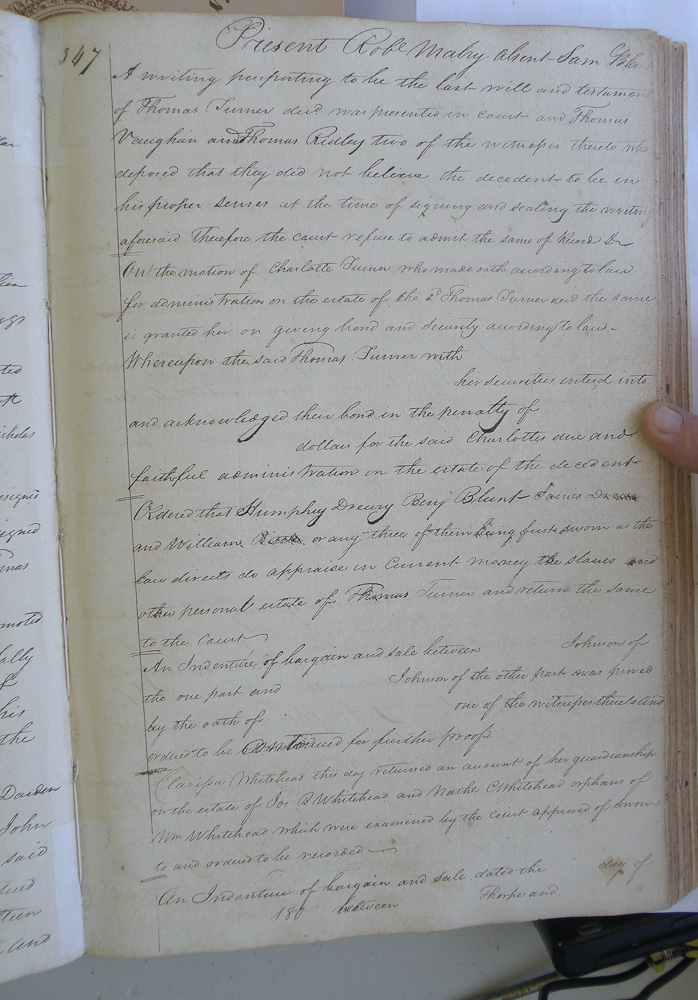 347
Present Robt Mabry absent Sam Blu
A writing purporting to be the last will and testamen
of Thomas Turner decd was presented in court and Thomas
Vaughan and Thomas Ridley two of the witnesses thereto who
deposed that they did not believe the decedent to be in
his proper senses at the time of signing and sealing the writing
aforesaid Therefore the court refuse to admit the same of Record
On the motion of Charlotte Turner who made oath according to law
for administration on the estate of the sd Thomas Turner decd the same
is granted her on giving bond and security according to law
Whereupon the said Thomas Turner with
her securities entered into
and acknowledged their bond in the penalty of
dollars for the said Charlottes due and
faithful administration on the estate of the decedent
Ordered that Humphry Drewry Benj Blunt James
and William or any three of them being first sworn as the
law directs do appraise in Current money the slaves and
other personal estate of Thomas Turner and return the same
to the Court
An Indenture of bargain and sale between Johnson of
the one part and Johnson of the other part was proved
by the oath of one of the witnesses thereto and
ordered to be Continued for further proof
Clarissa Whitehead this day returned an account of her guardianship
on the estate of Jos B Whitehead and Nathl C Whitehead orphans of
Wm Whitehead which were examined by the court approved of sworn
to and ordered to be recorded
An Indenture of bargain and sale dated the day of
180 between Thorpe and
ted
signed
igned
moted
ally
his
the
Darden
John
said
teen
and